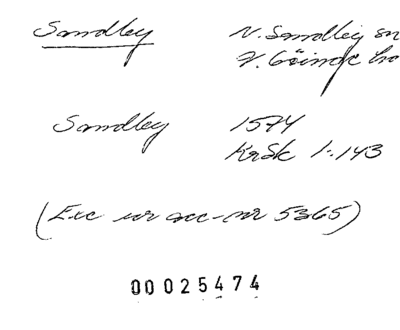 Sandby N. Sandby sn
V. Göinge hd
Sandby 1574
KrSk 1:143
(Exc ur acc-nr 5365)
00025474